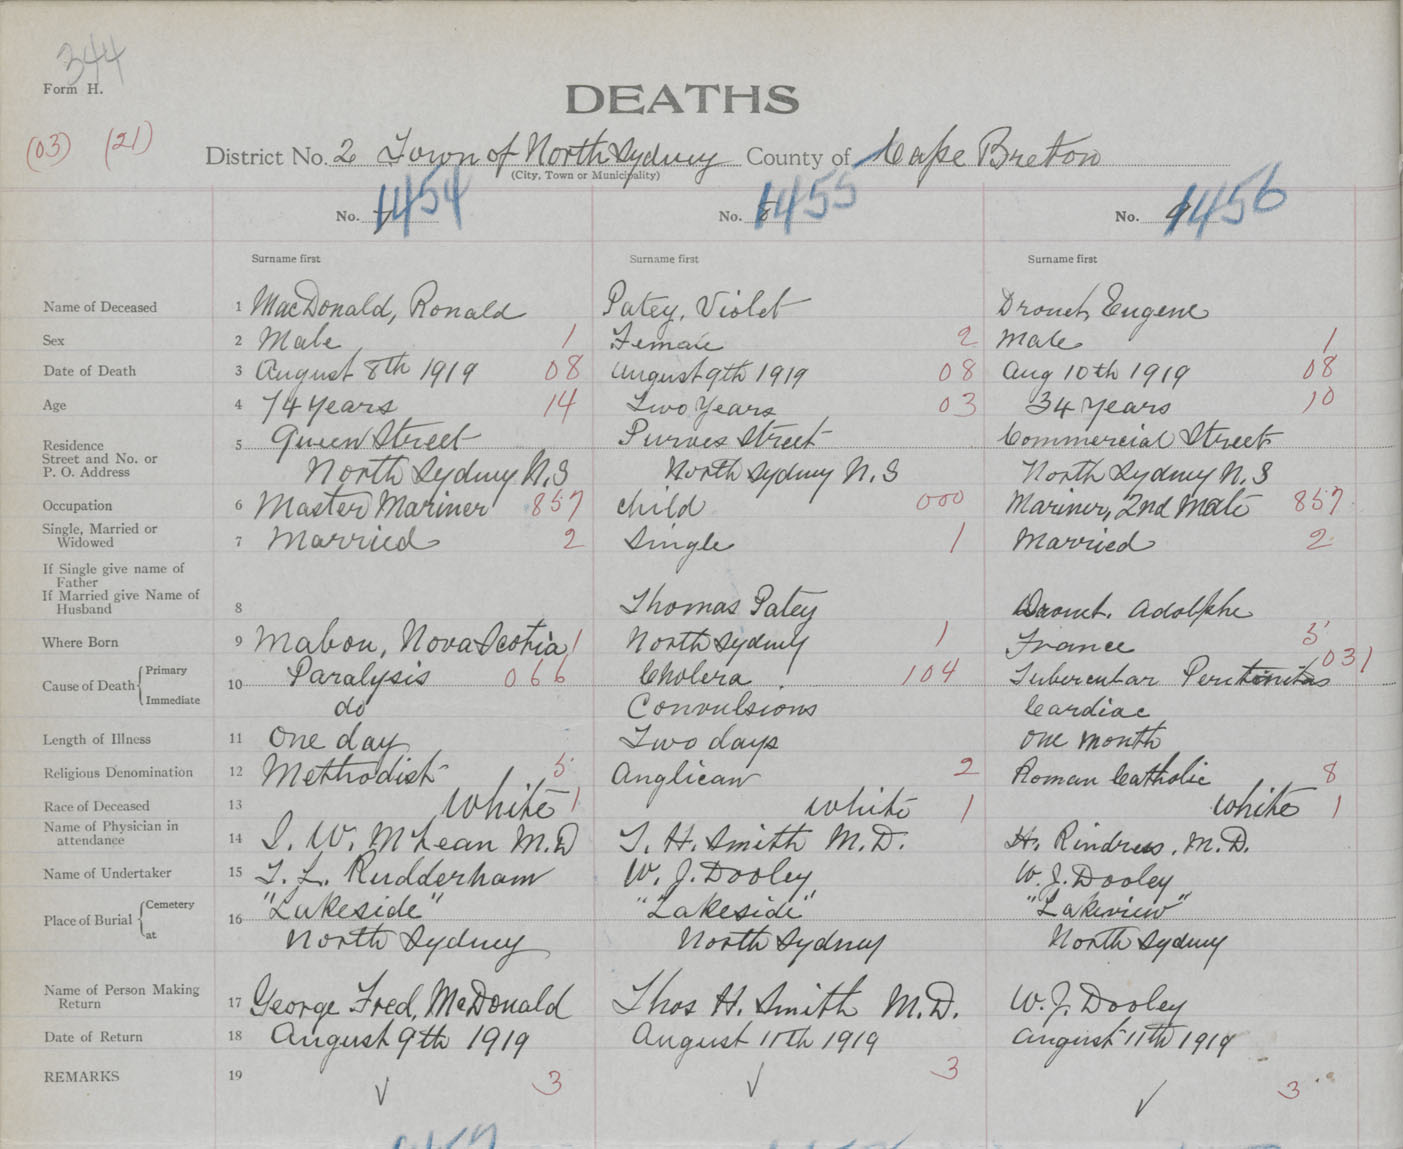 344
Form H.
DEATHS
(03) (21)
District No. 2 Town of North Sydney County of Cape Breton
(City, Town or Municipality)
No. 7 1454 No. 8 1455 No. 9 1456
Surname first Surname first Surname first
Name of Deceased 1 MacDonald, Ronald Patey, Violet Drouet, Eugene
Sex 2 Male 1 Female 2 Male 1
Date of Death 3 August 8th 1919 08 August 9th 1919 08 Aug 10th 1919 08
Age 4 74 years 14 Two Years 03 34 Years 10
Residence Street and No. or P. O. Address 5 Queen Street Purves Street Commercial Street
North Sydney N.S North Sydney N.S North Sydney N.S
Occupation 6 Master Mariner 857 child 000 Mariner, 2nd Mate 857
Single, Married or Widowed 7 Married 2 Single 1 Married 2
If Single give name of Father
If Married give Name of Husband 8 Thomas Patey Drouet. Adolphe
Where Born 9 Mabou, Nova Scotia 1 North Sydney 1 France 5
Cause of Death Primary 10 Paralysis 066 Cholera 104 Tubercular Peritonitis 031
Immediate do Convulsions Cardiac
Length of Illness 11 One day Two days One month
Religious Denomination 12 Methodist 5 Anglican 2 Roman Catholic 8
Race of Deceased 13 White 1 White 1 White 1
Name of Physician in attendance 14 W. McLean M.D T. H. Smith M.D. H. M.D.
Name of Undertaker 15 T. L. Rudderham W. J. Dooley W. J. Dooley
Place of Burial Cemetery 16 "Lakeside" "Lakeside" "Lakeview"
at North Sydney North Sydney North Sydney
Name of Person Making Return 17 George Fred, McDonald Thos H. Smith M.D. W. J. Dooley
Date of Return 18 August 9th 1919 August 11th 1919 August 11th 1919
REMARKS 19 3 3 3
1457